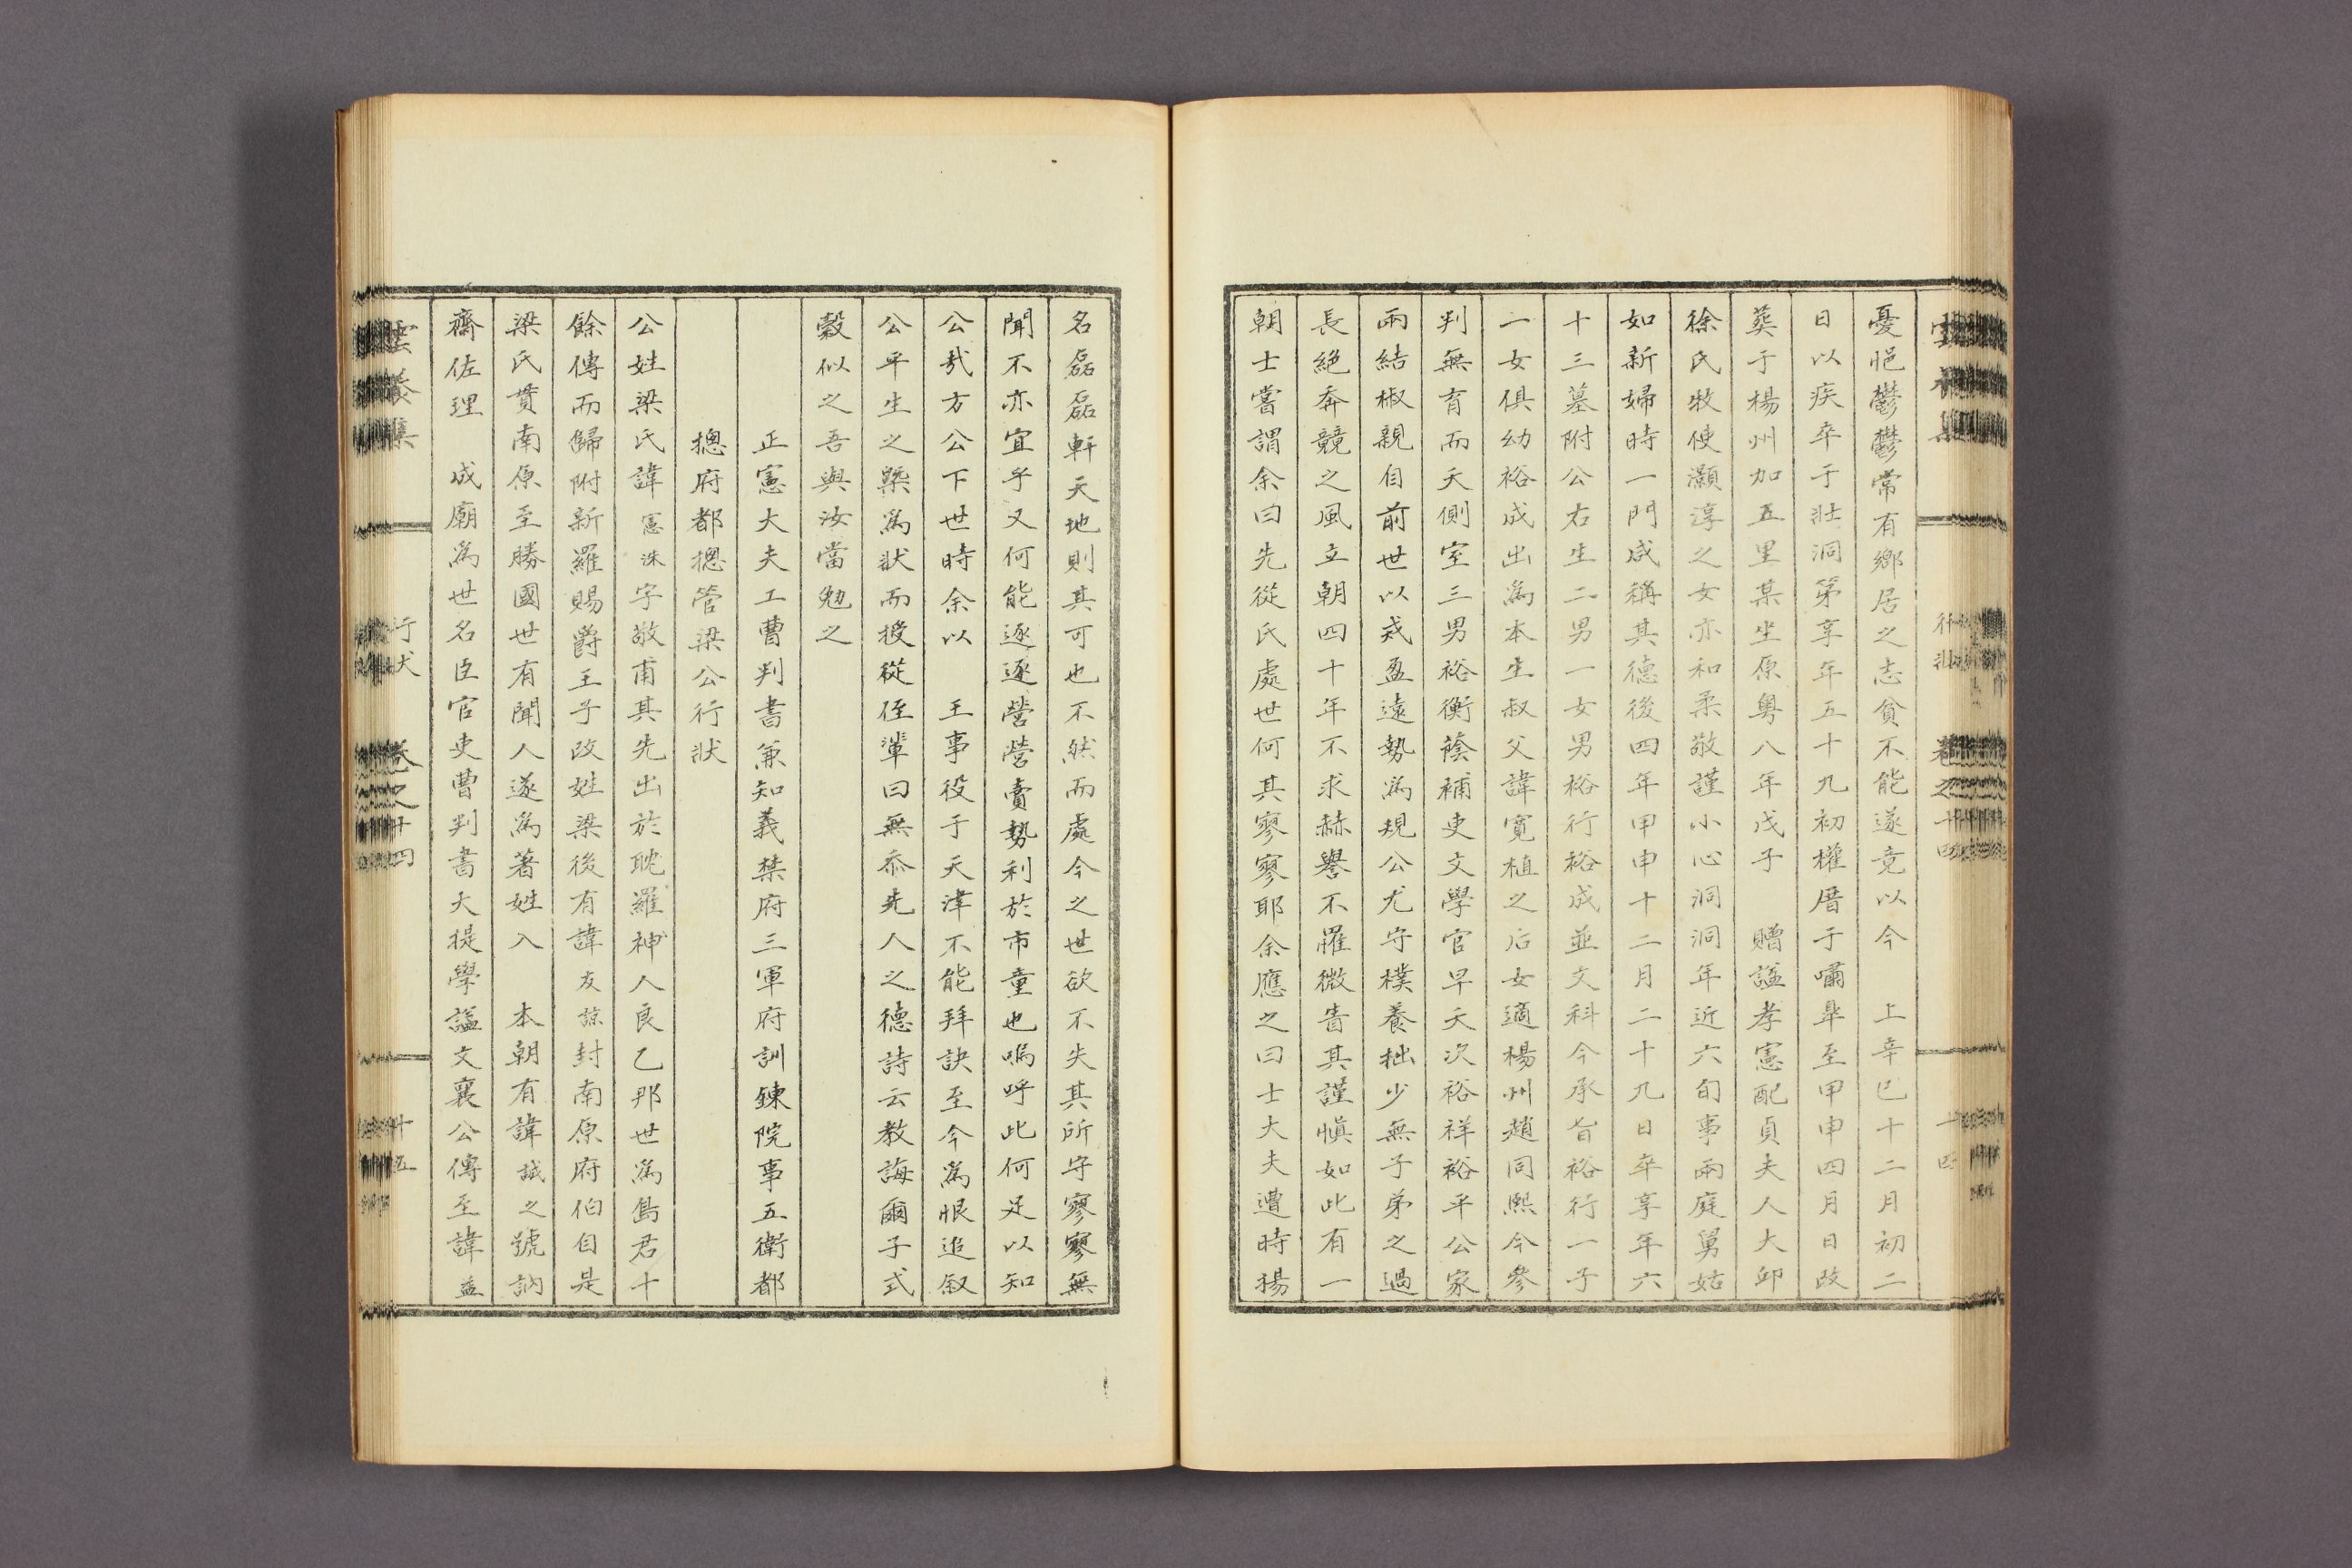 憂悒鬱鬱常有鄉居之志貧不能遂竟以今 上辛巳十二月初二
日以疾卒于壯洞第享年五十九初權厝于嘯皐至甲申四月日改
葬于楊州加五里某坐原粤八年戊子 贈諡孝憲配貞夫人大邱
徐氏牧使灝淳之女亦和柔敬謹小心洞洞年近六旬事兩庭舅姑
如新婦時一門咸稱其德後四年甲申十二月二十九日卒享年六
十三墓附公右生二男一女男裕行裕成並文科今承旨裕行一子
一女俱幼裕成出爲本生叔父諱寬植之后女適楊州趙同熙今參
判無育而夭側室三男裕衡蔭補吏文學官早夭次裕祥裕平公家
兩結椒親自前世以戒盈遠勢爲規公尤守樸養拙少無子弟之過
長絕奔競之風立朝四十年不求赫譽不罹微眚其謹愼如此有一
朝士嘗謂余曰先從氏處世何其寥寥耶余應之曰士大夫遭時揚
名磊磊軒天地則其可也不然而處今之世欲不失其所守寥寥無
聞不亦宜乎又何能逐逐營營賣勢利於市童也嗚呼此何足以知
公哉方公下世時余以 王事役于天津不能拜訣至今爲恨追敘
公平生之槩爲狀而授從侄輩曰無忝先人之德詩云教誨爾子式
穀似之吾與汝當勉之
正憲大夫工曹判書兼知義禁府三軍府訓鍊院事五衛都
摠府都摠管梁公行狀
公姓梁氏諱憲洙字敬甫其先出於耽羅神人良乙那世爲島君十
餘傳而歸附新羅賜爵王子改姓梁後有諱友諒封南原府伯自是
梁氏貫南原至勝國世有聞人遂爲著姓入 本朝有諱誠之號訥
齋佐理 成廟爲世名臣官吏曹判書大提學諡文襄公傳至諱益
雲養集 行狀 卷之十四 十五